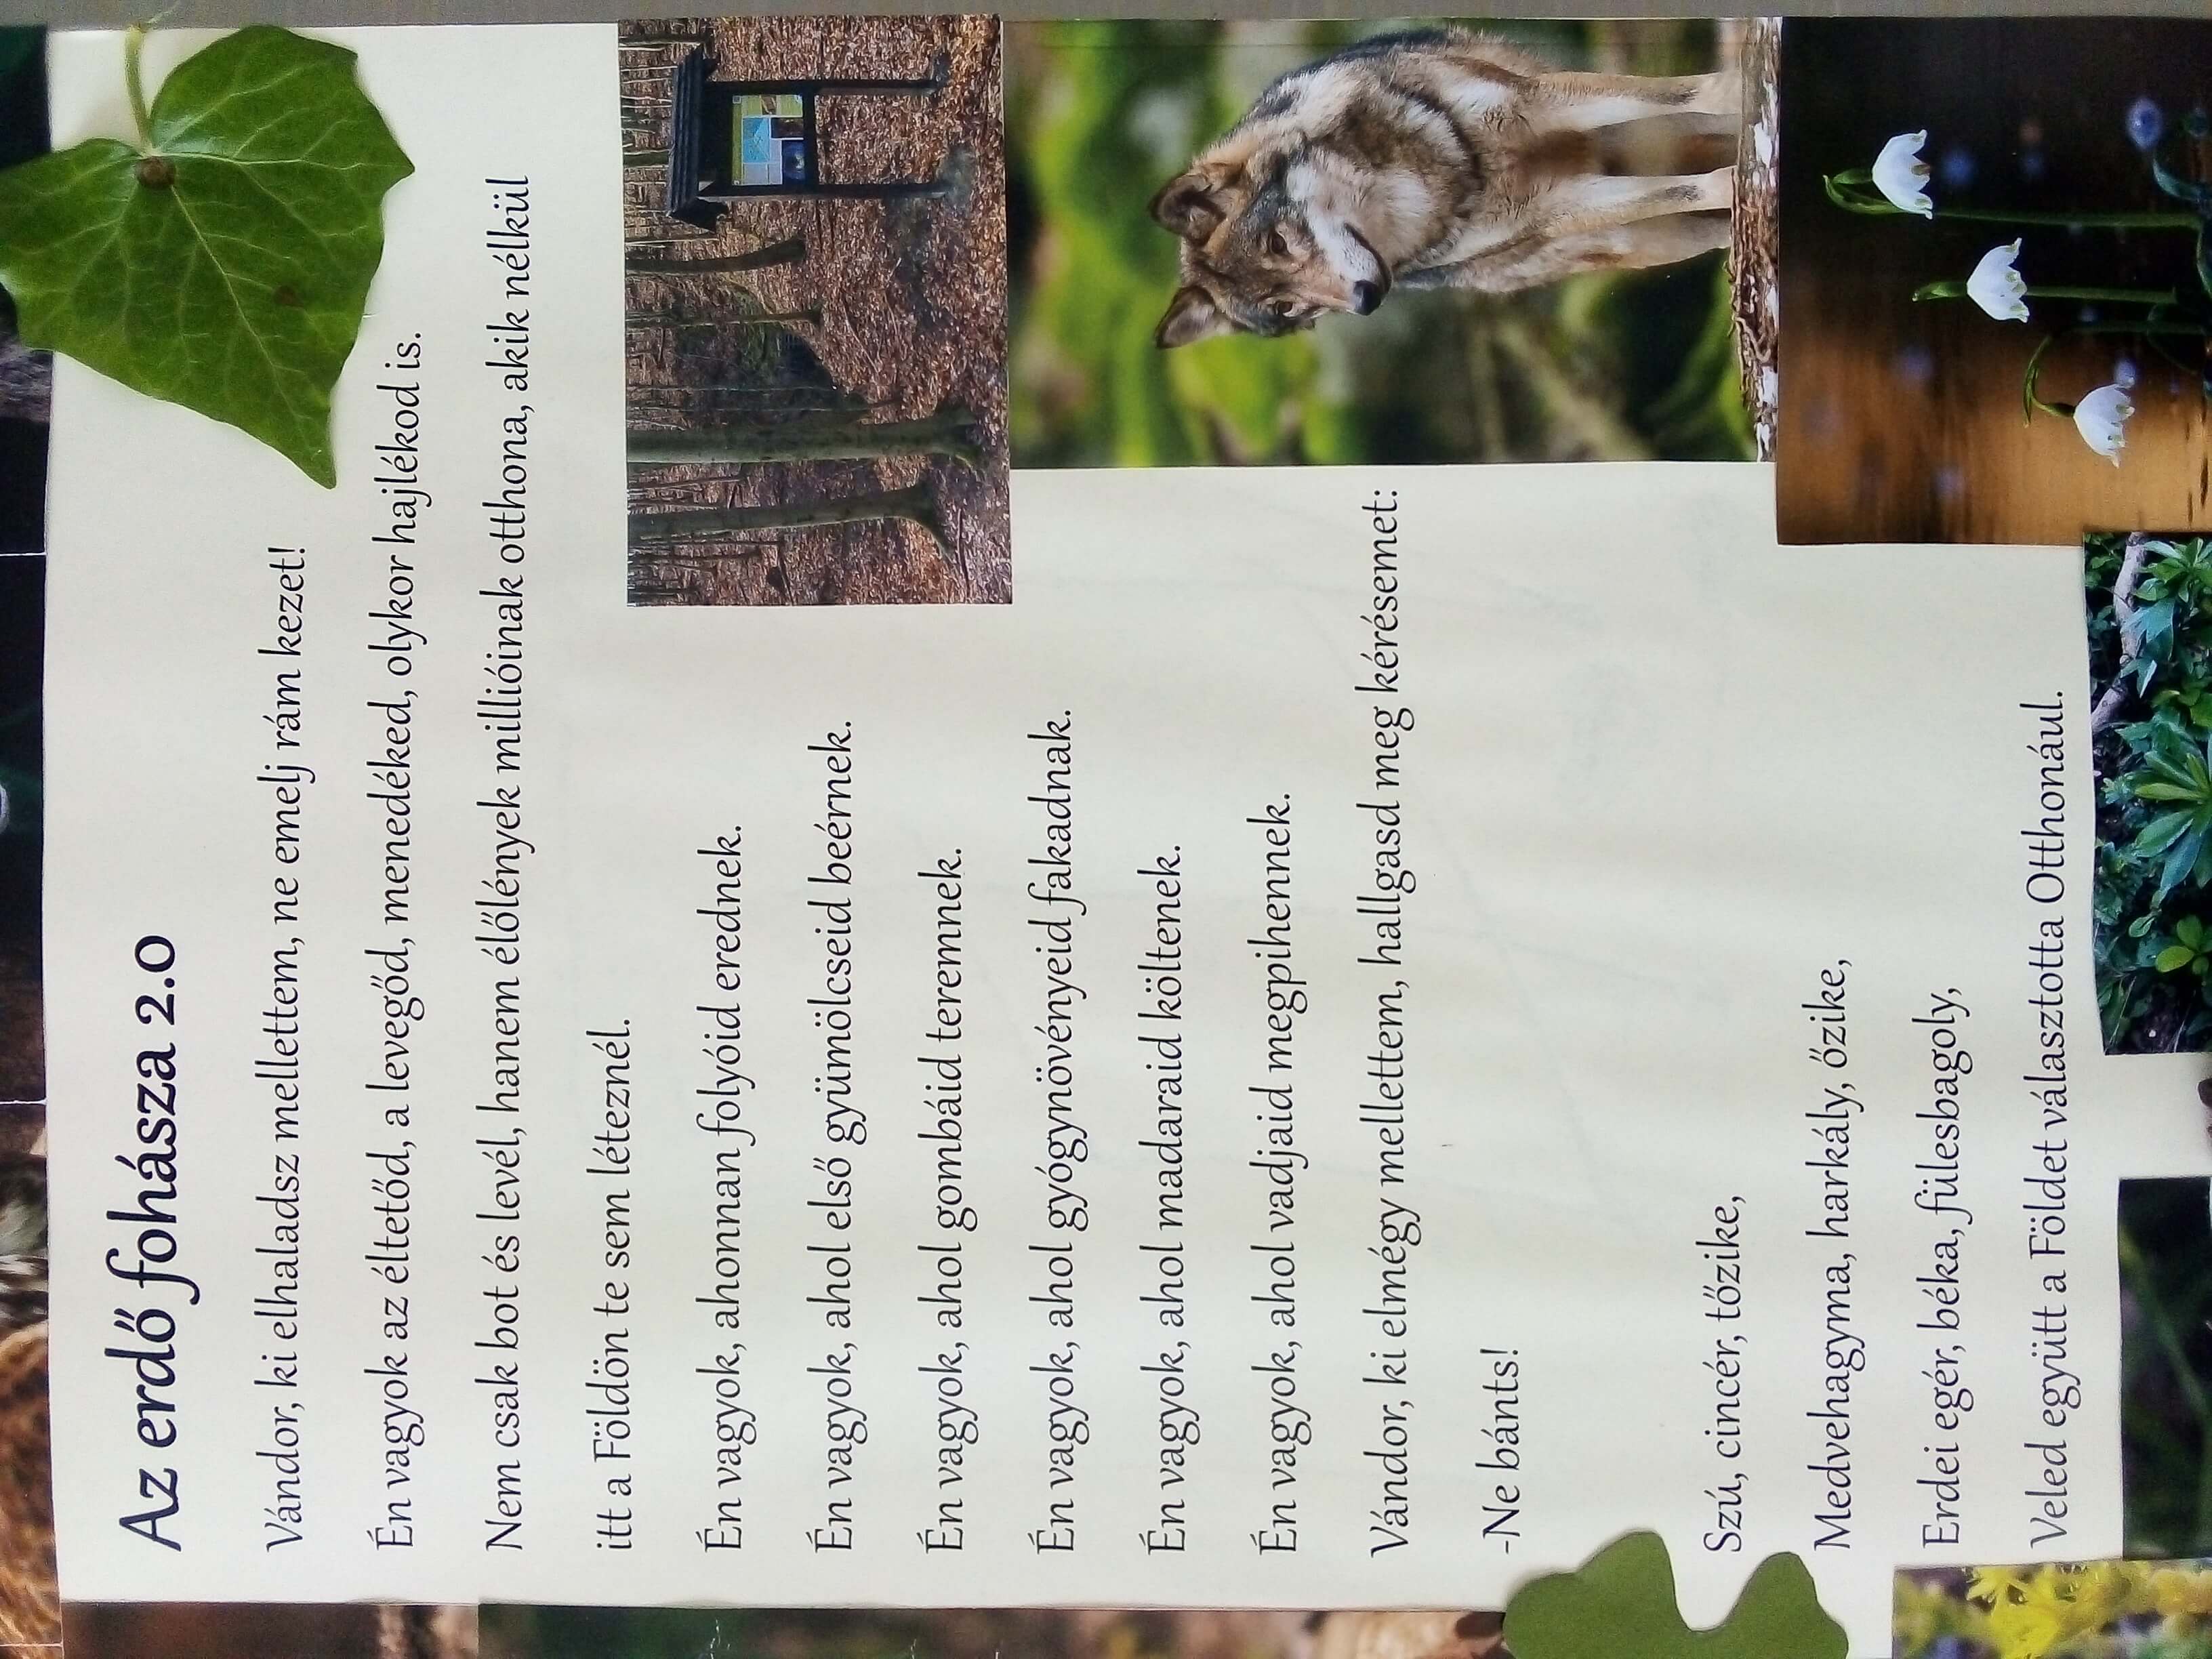 Az erdő fohásza 2.0
Vándor, ki elhaladsz mellettem, ne emelj rám kezet!
Én vagyok az éltetőd, a levegőd, menedéked, olykor hajlékod is.
Nem csak bot és levél, hanem élőlények millióinak otthona, akik nélkül
itt a Földön te sem léteznél.
Én vagyok, ahonnan folyóid erednek.
Én vagyok, ahol első gyümölcseid beérnek.
Én vagyok, ahol gombáid teremnek.
Én vagyok, ahol gyógynövényeid fakadnak.
Én vagyok, ahol madaraid költenek.
Én vagyok, ahol vadjaid megpihennek.
Vándor, ki elmégy mellettem, hallgasd meg kérésemet:
-Ne bánts!
Szú, cincér, tőzike,
Medvehagyma, harkály, őzike,
Erdei egér, béka, fülesbagoly,
Veled együtt a Földet választotta Otthonául.